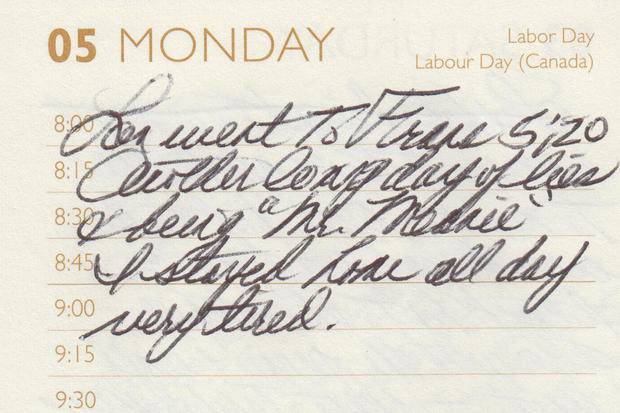 05 MONDAY
Labor Day
Labour Day (Canada)
8:00
Len went To Frans 5;20
8:15
Another long day of lies
8:30
& being "a Mr. Meanie"
8:45
I stayed home all day
9:00
very tired.
9:15
9:30